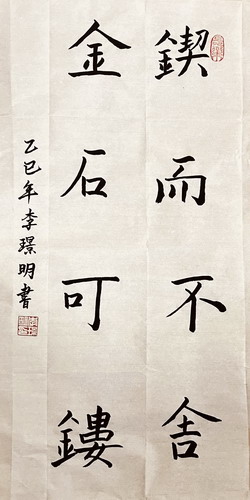 鍥而不舍
金石可鏤
乙巳年李璟明書